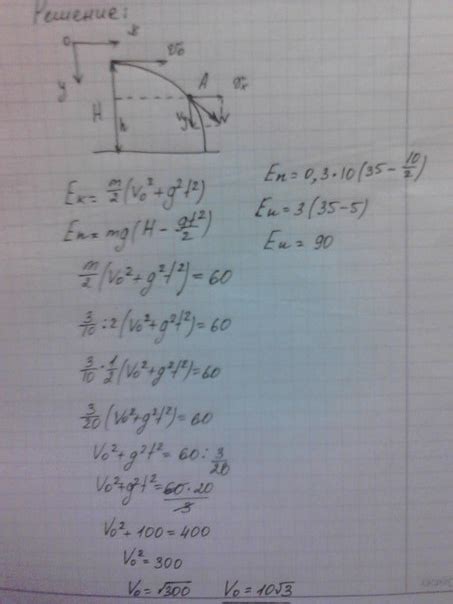 Решение:
0 x
y
V₀
H
h
A
Vₓ
Vy
V
Eк = m/2 (V₀² + g²t²)
Eп = mg(H − gt²/2)
m/2 (V₀² + g²t²) = 60
3/10 : 2 (V₀² + g²t²) = 60
3/10 · 1/2 (V₀² + g²t²) = 60
3/20 (V₀² + g²t²) = 60
V₀² + g²t² = 60 : 3/20
V₀² + g²t² = 60·20/3
V₀² + 100 = 400
V₀² = 300
V₀ = √300 V₀ = 10√3
Eп = 0,3·10(35 − 10/2)
Eп = 3(35−5)
Eп = 90